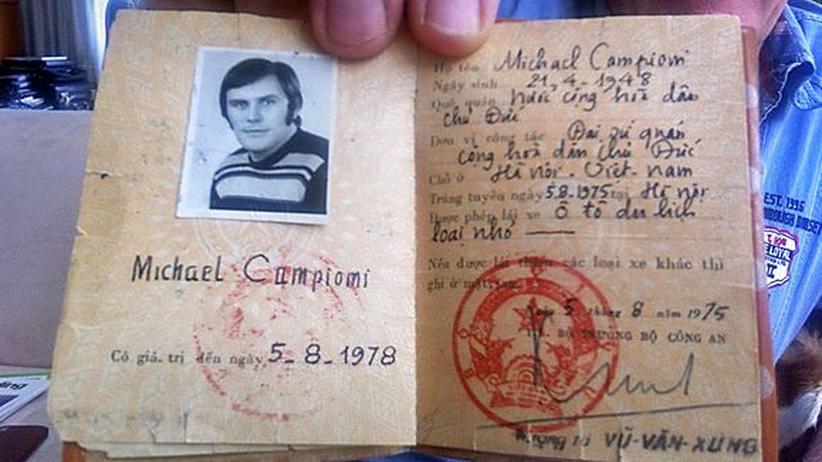 Michael Campiomi
Có giá trị đến ngày 5-8-1978
Họ tên Michael Campiomi
Ngày sinh 21.4-1948
Quê quán Nước cộng hoà dân
chủ Đức
Đơn vị công tác Đại sứ quán
cộng hoà dân chủ Đức
Chỗ ở Hà nội - Việt-nam
Trúng tuyển ngày 5.8.1975 tại Hà nội
Được phép lái xe Ô tô du lịch
loại nhỏ
Nếu được lái thêm các loại xe khác thì
ghi ở mặt sau
Ngày 5 tháng 8 năm 1975
BỘ TRƯỞNG BỘ CÔNG AN
VŨ-VĂN-XUNG
EST. 1996
LOYAL